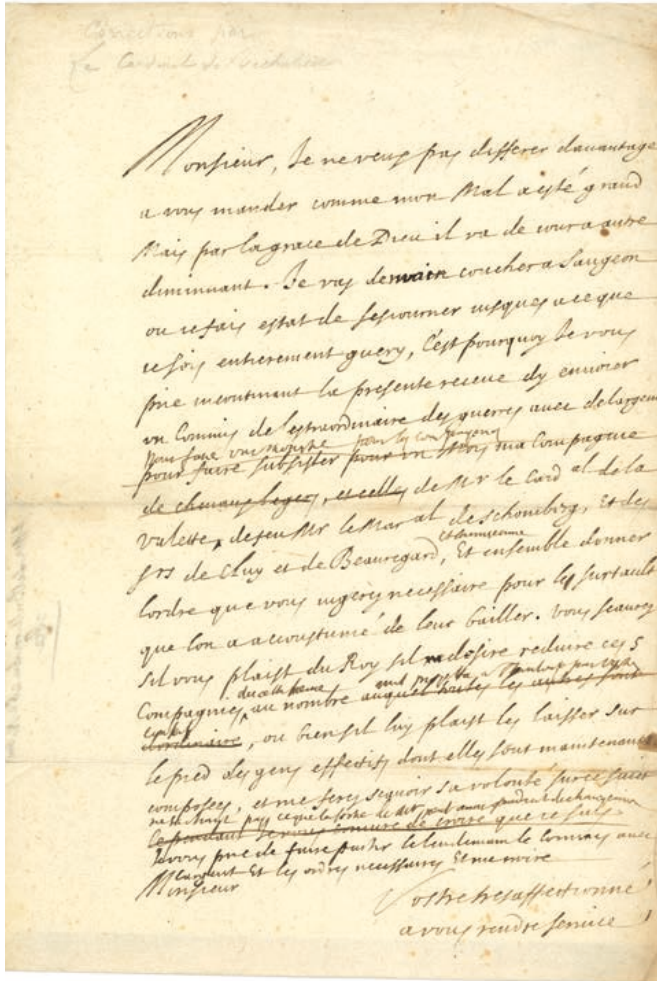 Corrections par
Le Cardinal de Richelieu
Monsieur, Je ne veux pas differer davantage
a vous mander comme mon Mal a esté grand
Mais par la grace de Dieu il va de iour a autre
diminuant. Je vay demain coucher a Saugeon
ou ie fais estat de seiourner iusques a ce que
ie sois entierement guery, C'est pourquoy Je vous
prie incontinant la presente receue dy envoier
un Commis de lextraordinaire des guerres avec de largent
pour faire une monstre
pour faire subsister pour un mois ma Compagnie
de chevaux legers, et celles de Mr le Card al de la
Valette, de feu Mr le Mar al de Schomberg, Et des
et la mienne
srs de Cluy et de Beauregard, Et ensemble donner
lordre que vous iugerez necessaire pour le surtault
que lon a accoustumé de leur bailler. Vous scaurez
sil vous plaist du Roy sil desire reduire ces 5
Compagnies au nombre auquel toutes les autres sont
dordinaire, ou bien sil luy plaist les laisser sur
le pied des gens effectifs dont elles sont maintenant
composées, et me ferez scavoir sa volonté sur ce suiet
Cependant Je vous coniure de croire que ie suis
Je vous prie de faire partir le lendemain le Commis avec
largent Et les ordres necessaires Et me croire
Monsieur
Vostre tres affectionné
a vous rendre service